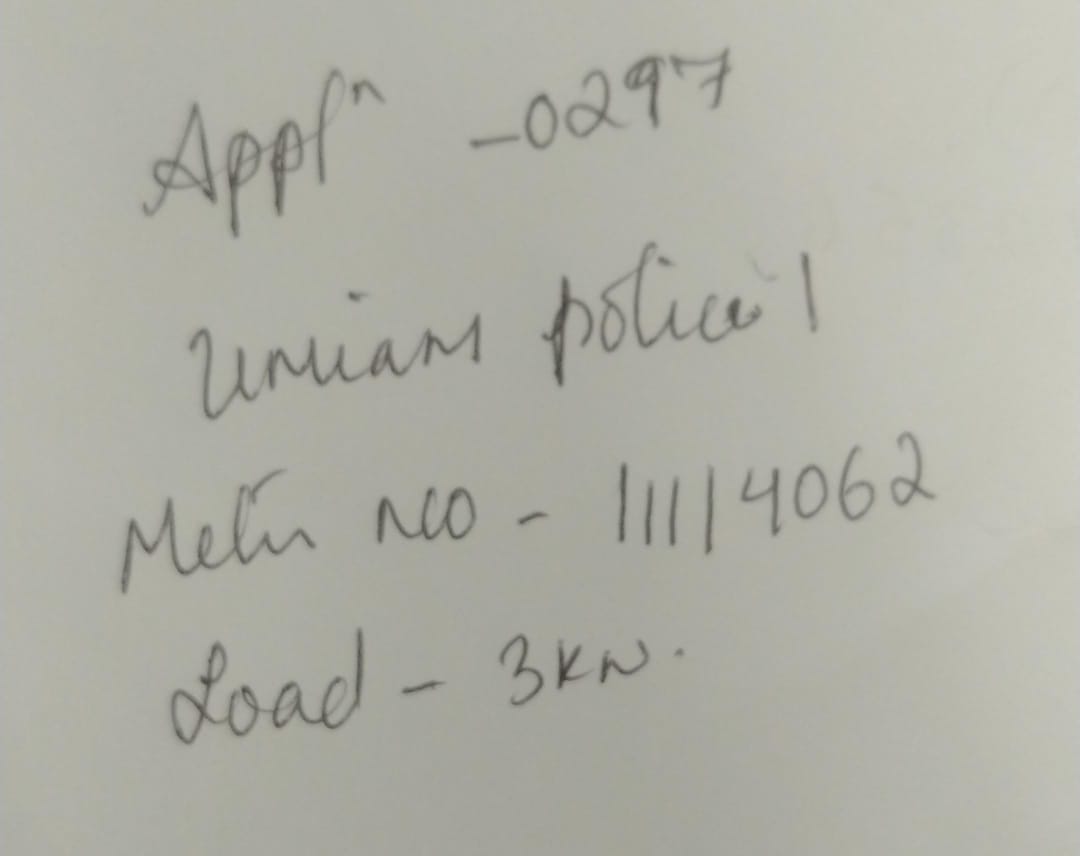 Appln - 0297
police 1
Meter no - 11114062
Load - 3kw.